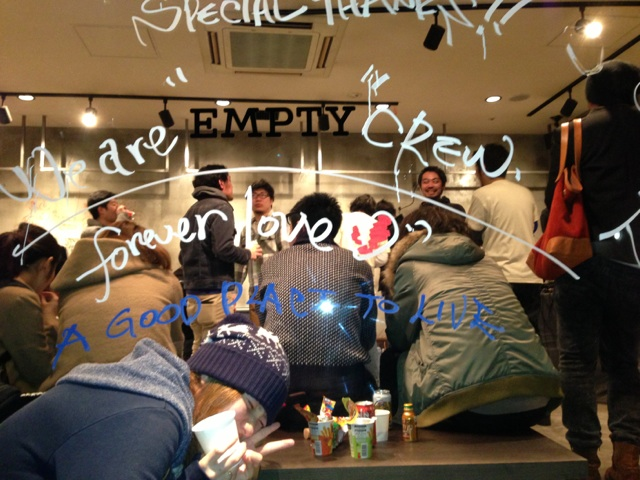 SPECIAL THANKS!!
"EMPTY"
We are
CREW.
forever love
A GOOD PLACE TO LIVE